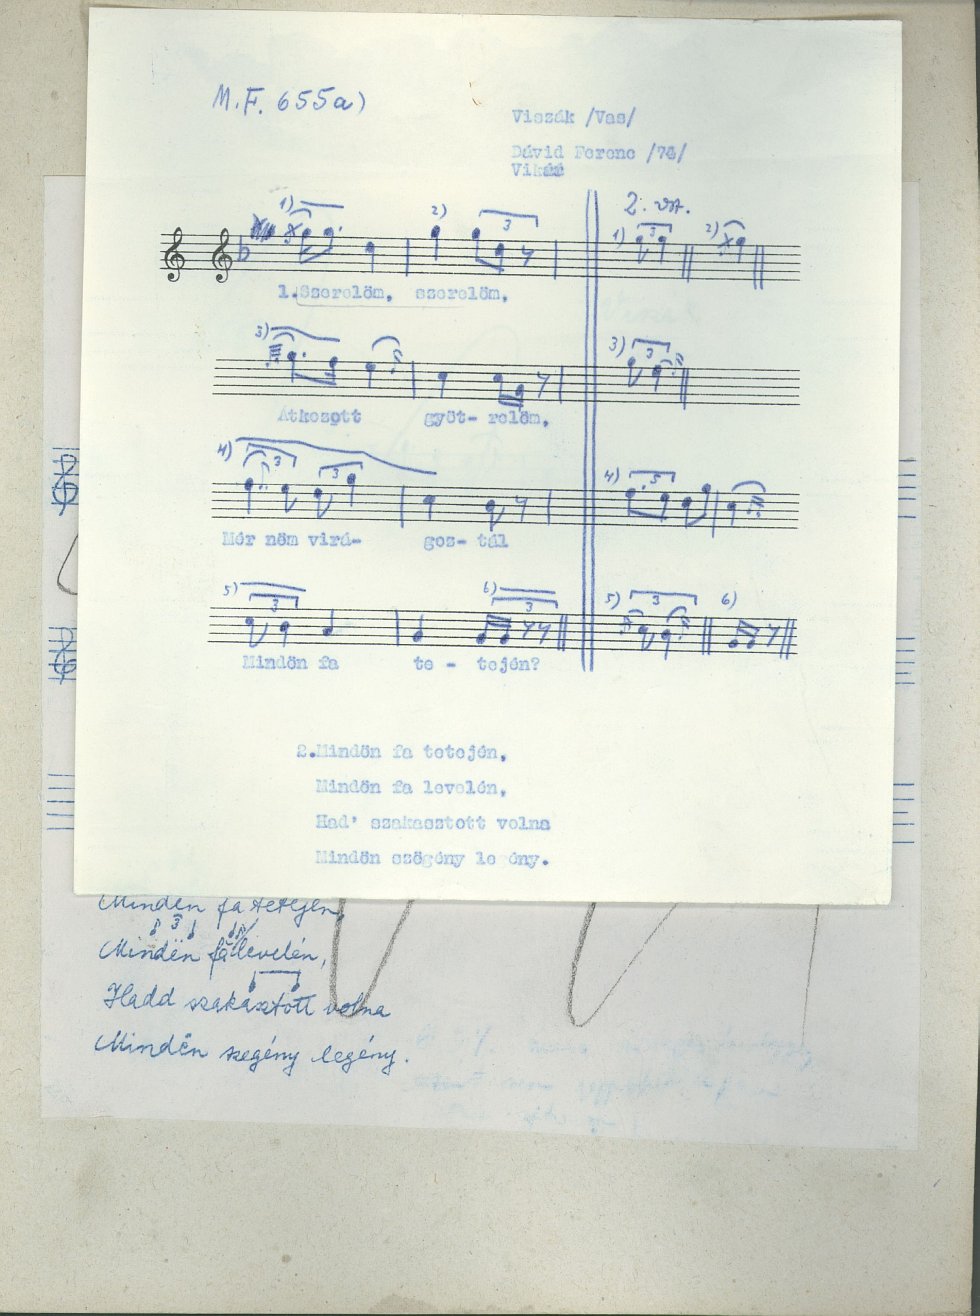 M.F. 655a)
Viszák /Vas/
Dávid Ferenc /74/
Vikár
2. vsz.
1) 2) 3 1) 3 2)
1.Szerelöm, szerelöm,
3) 3) 3
Átkozott gyöt- relöm,
4) 3 3 4) 5
Mér nöm virá- goz- tál
5) 3 6) 3 5) 3 6)
Mindön fa te - tején?
2.Mindön fa tetején,
Mindön fa levelén,
Had' szakasztott volna
Mindön szögény legény.
Minden fa tetején,
3
Mindën fa levelén,
Hadd szakasztott volna
Mindën szegény legény.